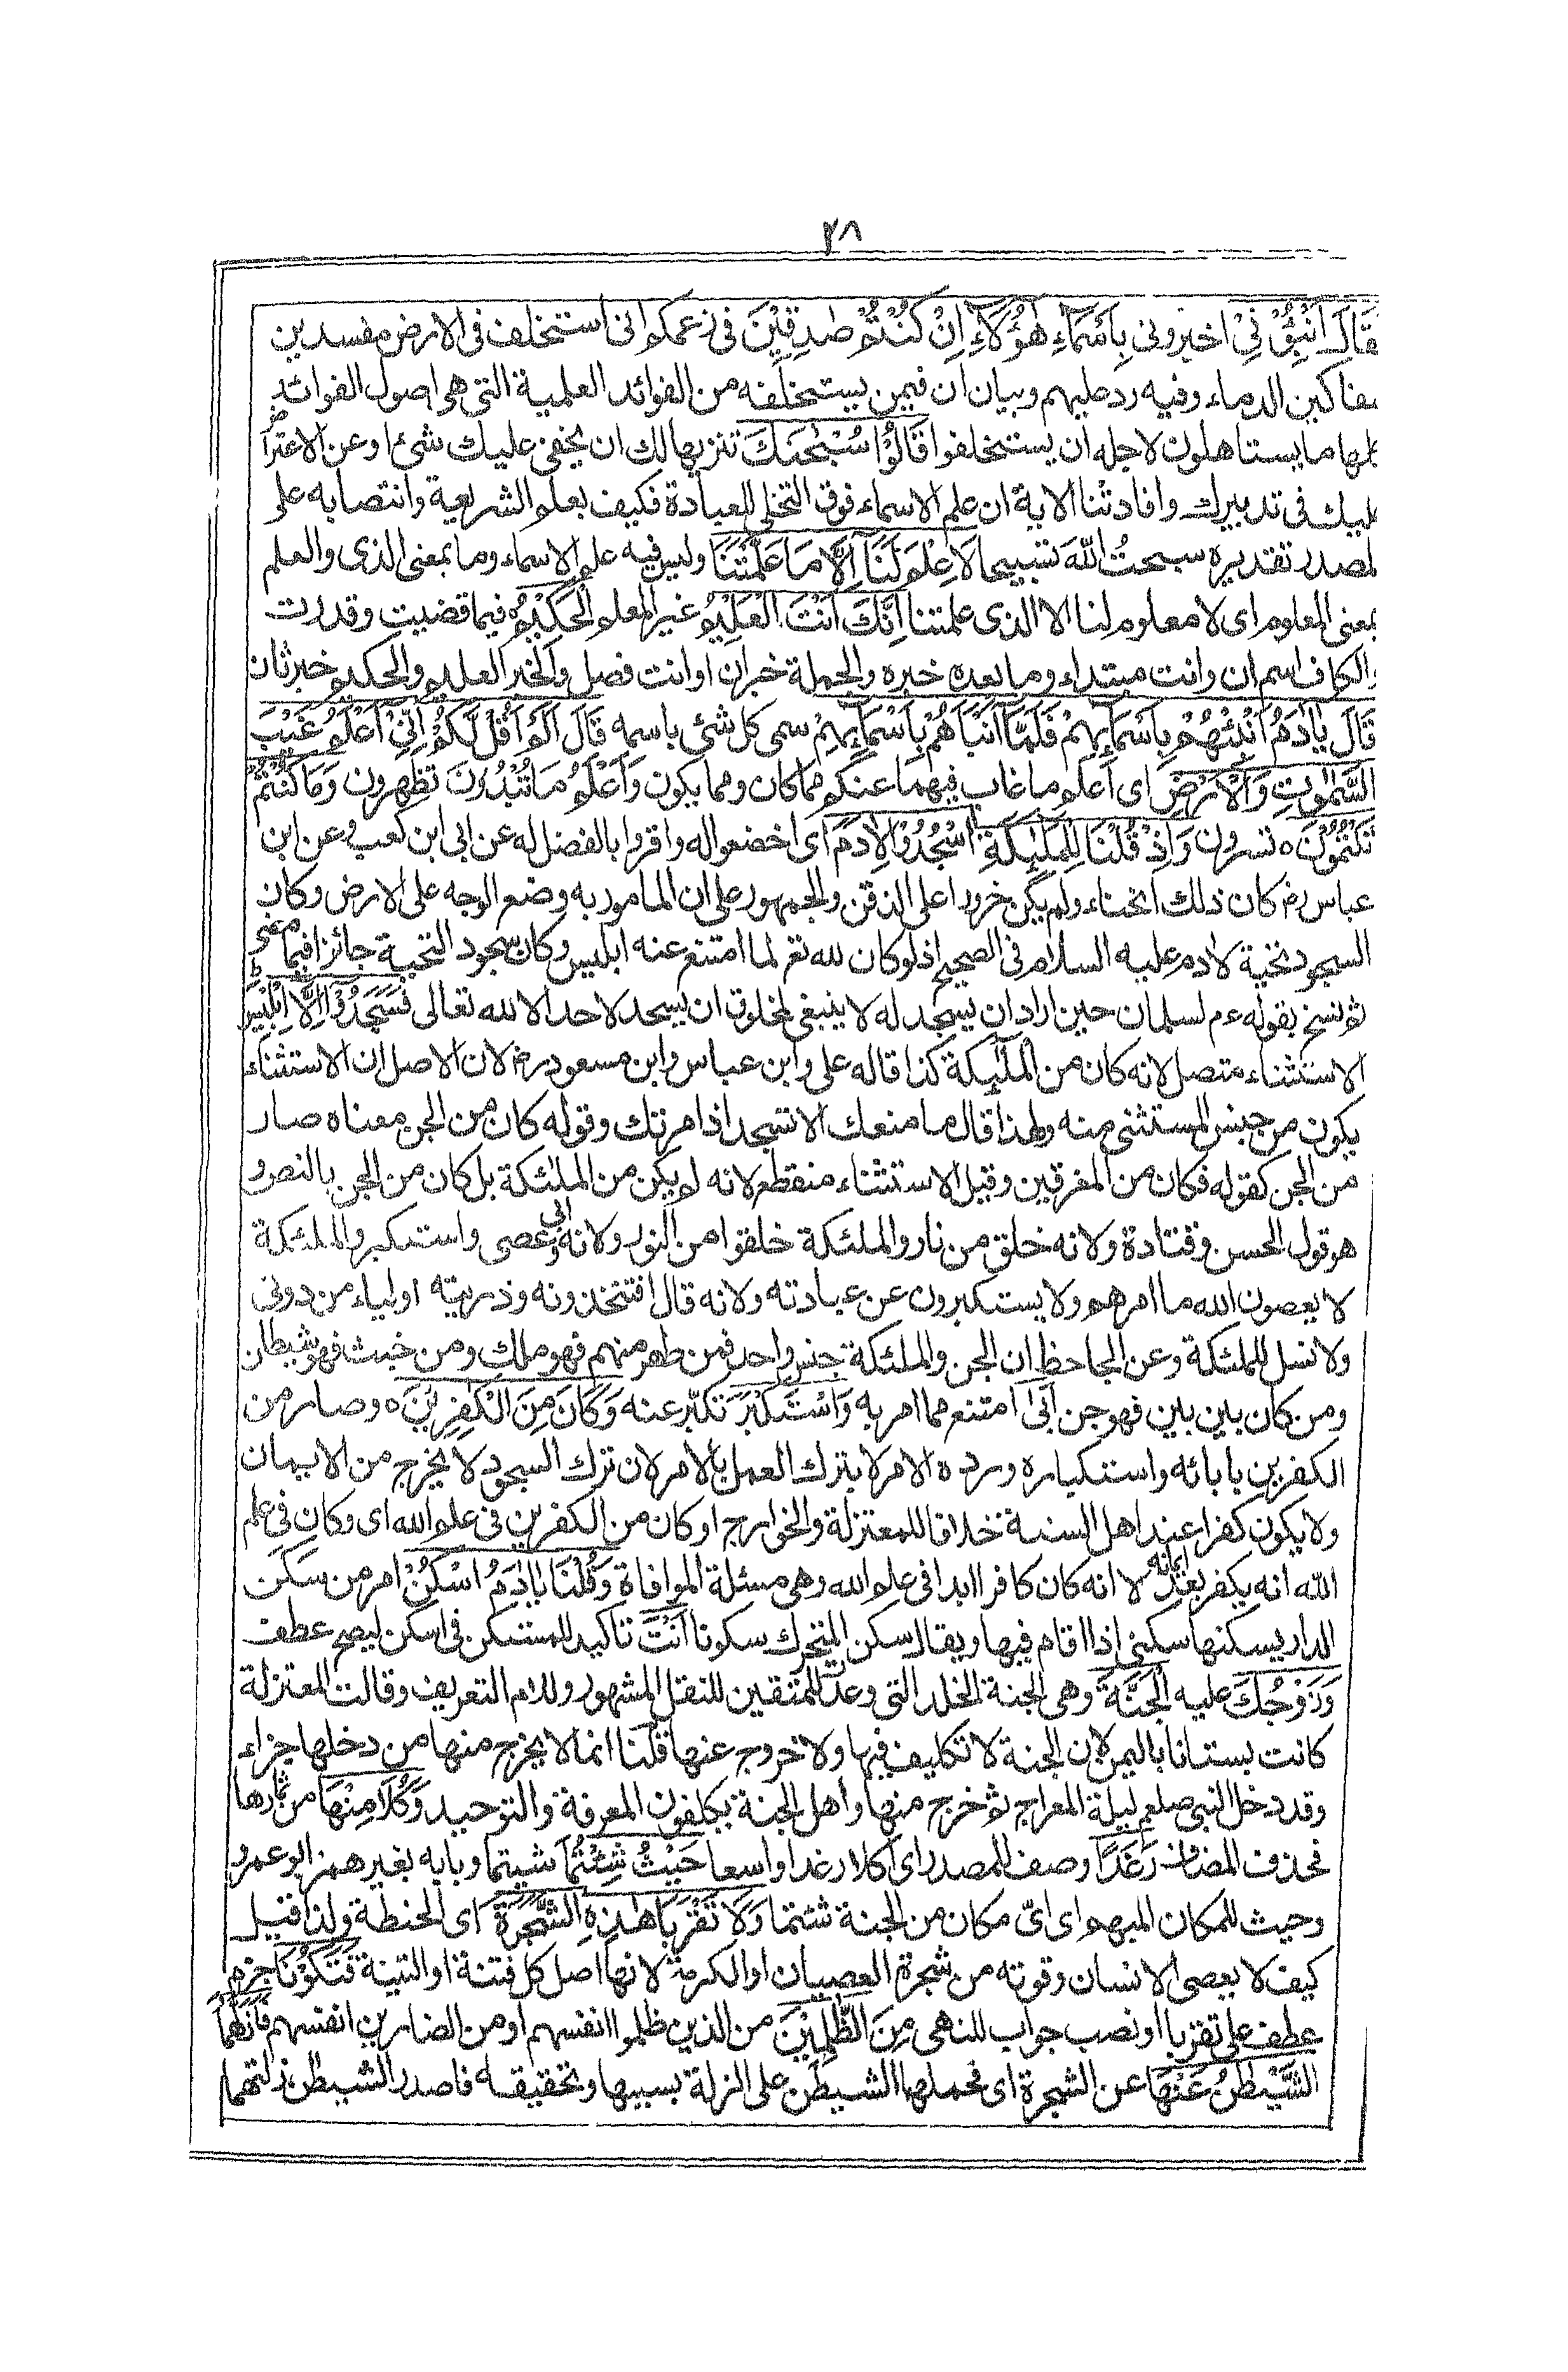 ٢٨
فَقَالَ اَنْبِئُوْنِيْ اخبرونى بِاَسْمَآءِ هٰؤُلَآءِ اِنْ كُنْتُمْ صٰدِقِيْنَ فى زعمكم انى استخلف فى الارض مفسدين
سفاكين الدماء وفيه رد عليهم وبيان ان فيمن يستخلفه من الفوائد العلمية التى هى اصول الفوائد
كلها ما يستاهلون لاجله ان يستخلفوا قَالُوْا سُبْحٰنَكَ تنزيها لك ان يخفى عليك شئ او عن الاعتراض
عليك فى تدبيرك وافادتنا الاية ان علم الاسماء فوق التخلى للعبادة فكيف بعلم الشريعة وانتصابه على
المصدر تقديره سبحتُ اللّٰهَ تسبيحا لَا عِلْمَ لَنَا اِلَّا مَا عَلَّمْتَنَا وليس فيه علم الاسماء وما بمعنى الذى والعلم
بمعنى المعلوم اى لا معلوم لنا الا الذى علمتنا اِنَّكَ اَنْتَ الْعَلِيْمُ غير المعلم الْحَكِيْمُ ه فيما قضيت وقدرت
والكاف اسم ان وانت مبتداء وما بعده خبره والجملة خبر ان او انت فصل والخبر العليم والحكيم خبر ثان
قَالَ يٰاٰدَمُ اَنْبِئْهُمْ بِاَسْمَآئِهِمْ فَلَمَّآ اَنْبَاَهُمْ بِاَسْمَآئِهِمْ سمى كل شئ باسمه قَالَ اَلَمْ اَقُلْ لَّكُمْ اِنِّيْٓ اَعْلَمُ غَيْبَ
السَّمٰوٰتِ وَالْاَرْضِ اى اعلم ما غاب فيهما عنكم مما كان ومما يكون وَاَعْلَمُ مَا تُبْدُوْنَ تظهرون وَمَا كُنْتُمْ
تَكْتُمُوْنَ ه تسرون وَاِذْ قُلْنَا لِلْمَلٰٓئِكَةِ اسْجُدُوْا لِاٰدَمَ اى اخضعوا له واقروا بالفضل له عن ابى ابن كعب وعن ابن
عباس رض كان ذلك انحناء ولم يكن خرورا على الذقن والجمهور على ان المامور به وضع الوجه على الارض وكان
السجود تحية لادم عليه السلام فى الصحيح اذ لو كان لله تع لما امتنع عنه ابليس وكان سجود التحية جائزا فيما مضى
ثم نسخ بقوله عم لسلمان حين اراد ان يسجد له لا ينبغى لمخلوق ان يسجد لاحد الا لله تعالى فَسَجَدُوْا اِلَّا اِبْلِيْسَ ط
الاستثناء متصل لانه كان من الملٰٓئكة كذا قاله على وابن عباس وابن مسعود رض لان الاصل ان الاستثناء
يكون من جنس المستثنى منه ولهذا قال ما منعك الا تسجد اذ امرتك وقوله كان من الجن معناه صار
من الجن كقوله فكان من المغرقين وقيل الاستثناء منقطع لانه لم يكن من الملئكة بل كان من الجن بالنص و
هو قول الحسن وقتادة ولانه خلق من نار والملئكة خلقوا من النور ولانه ابى وعصى واستكبر والملئكة
لا يعصون الله ما امرهم ولا يستكبرون عن عبادته ولانه قال افتتخذونه وذريته اولياء من دونى
ولا نسل للملئكة وعن الجاحظ ان الجن والملئكة جنس واحد فمن طهر منهم فهو ملك ومن خبث فهو شيطان
ومن كان بين بين فهو جن اَبٰى امتنع مما امر به وَاسْتَكْبَرَ تكبّر عنه وَكَانَ مِنَ الْكٰفِرِيْنَ ه وصار من
الكفرين بابائه واستكباره ورده الامر لا بترك العمل بالامر لان ترك السجود لا يخرج من الايمان
ولا يكون كفرا عند اهل السنة خلافا للمعتزلة والخوارج او كان من الكفرين فى علم الله اى وكان فى علم
الله انه يكفر بعد ايمانه لا انه كان كافرا ابدا فى علم الله وهى مسئلة الموافاة وَقُلْنَا يٰاٰدَمُ اسْكُنْ امر من سكن
الدار يسكنها سكنى اذا اقام فيها ويقال سكن المتحرك سكونا اَنْتَ تاكيد للمستكن فى اسكن ليصح عطف
وَزَوْجُكَ عليه الْجَنَّةَ وهى الجنة الخلد التى وعد للمتقين للنقل المشهور وللام التعريف وقالت المعتزلة
كانت بستانا باليمن لان الجنة لا تكليف فيها ولا خروج عنها قلنا انما لا يخرج منها من دخلها جزاء
وقد دخل النبى صلعم ليلة المعراج ثم خرج منها واهل الجنة يكلفون المعرفة والتوحيد وَكُلَا مِنْهَا من ثمارها
فحذف المضاف رَغَدًا وصف للمصدر اى اكلا رغدا واسعا حَيْثُ شِئْتُمَا شيتما وبابه بغير همز ابو عمرو
وحيث للمكان المبهم اى اىّ مكان من الجنة شئتما وَلَا تَقْرَبَا هٰذِهِ الشَّجَرَةَ اى الحنطة ولذا قيل
كيف لا يعصى الانسان وقوته من شجرة العصيان او الكرمة لانها اصل كل فتنة او التينة فَتَكُوْنَا جزم
عطف على تقربا او نصب جواب للنهى مِنَ الظّٰلِمِيْنَ من الذين ظلموا انفسهم او من الضارين انفسهم فَاَزَلَّهُمَا
الشَّيْطٰنُ عَنْهَا عن الشجرة اى فحملهما الشيطٰن على الزلة بسببها وتحقيقه فاصدر الشيطٰن زلتهما